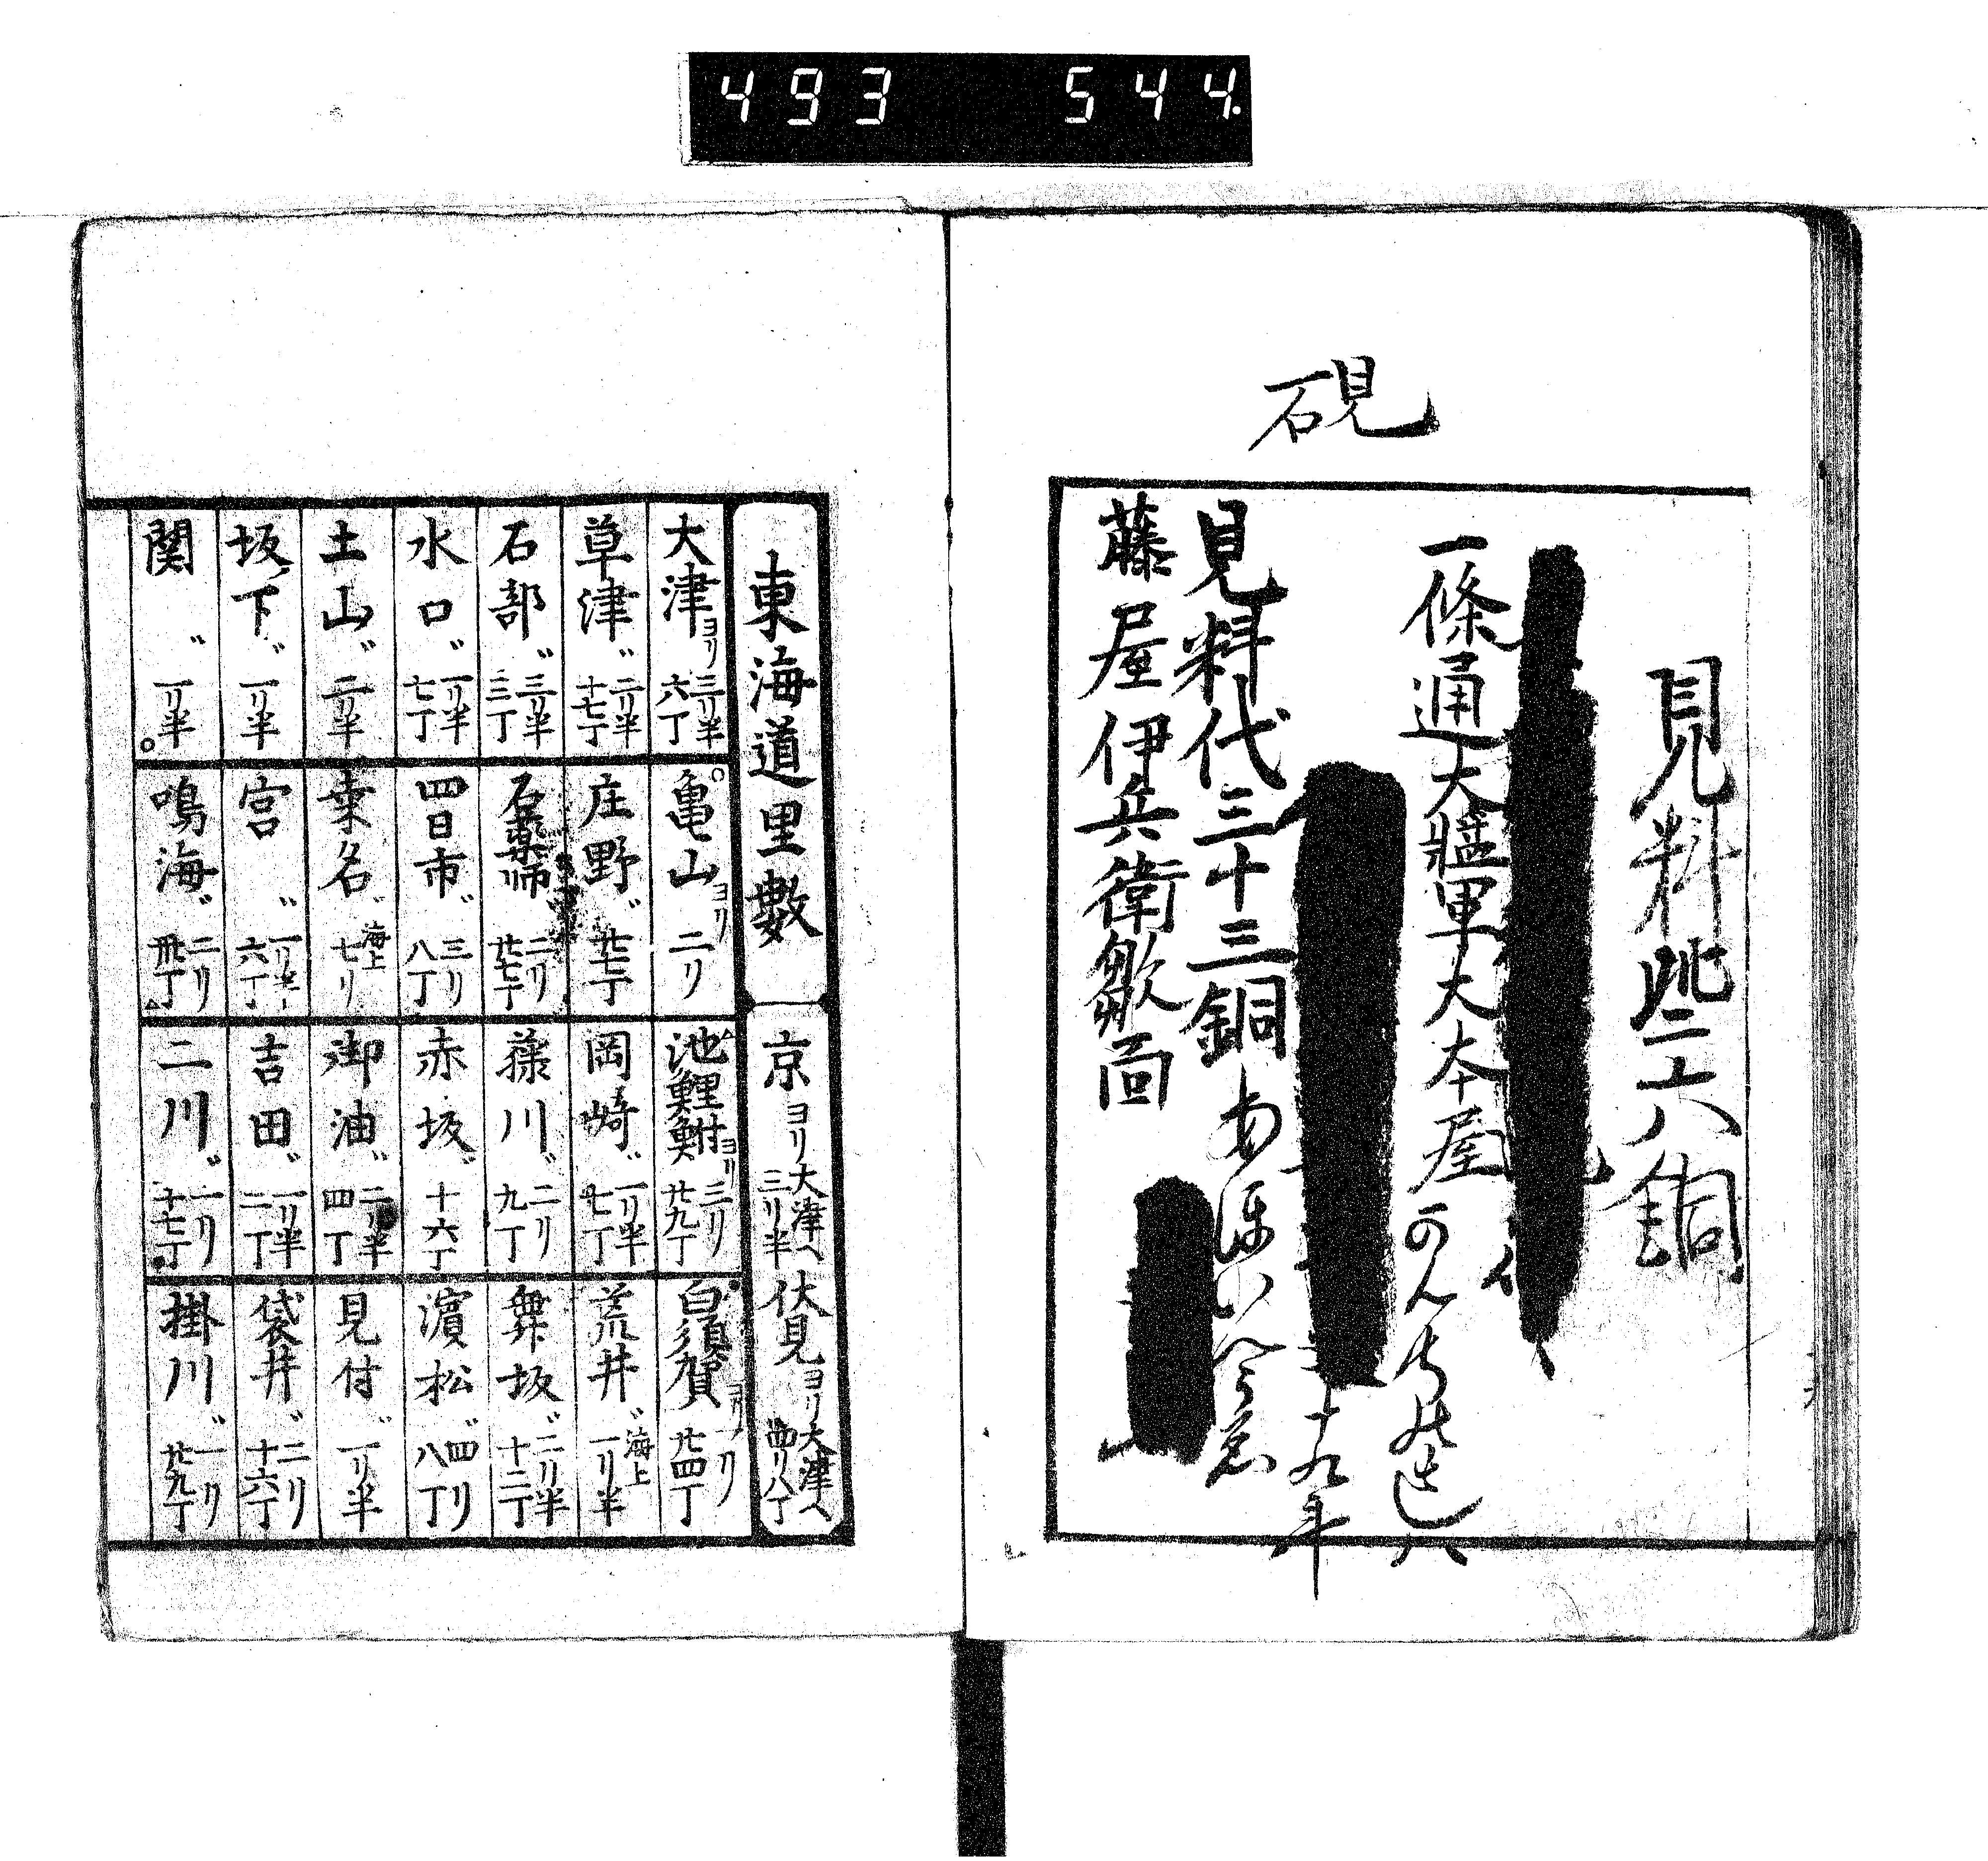 493 544.
硯
見料
六銅
一條通大將軍大本屋
十九年
見料代三十三銅
藤屋伊兵衛
東海道里數
京ヨリ大津ヘ三リ半
伏見ヨリ大津ヘ四リ八丁
大津ヨリ三リ半六丁
草津〃二リ半十七丁
石部〃三リ半三丁
水口〃一リ半七丁
土山〃二リ半
坂下〃一リ半
関〃一リ半
亀山ヨリ二リ
庄野〃廿七丁
石薬師〃二リ廿七丁
四日市〃三リ八丁
桒名〃海上七リ
宮〃一リ半六丁
鳴海〃二リ卅丁
池鯉鮒ヨリ三リ廿九丁
岡崎〃一リ半七丁
藤川〃二リ九丁
赤坂〃十六丁
御油〃二リ半四丁
吉田〃一リ半二丁
二川〃一リ十七丁
白須賀ヨリ一リ廿四丁
荒井〃海上一リ半
舞坂〃二リ半十二丁
濱松〃四リ八丁
見付〃一リ半
袋井〃二リ十六丁
掛川〃一リ廿九丁